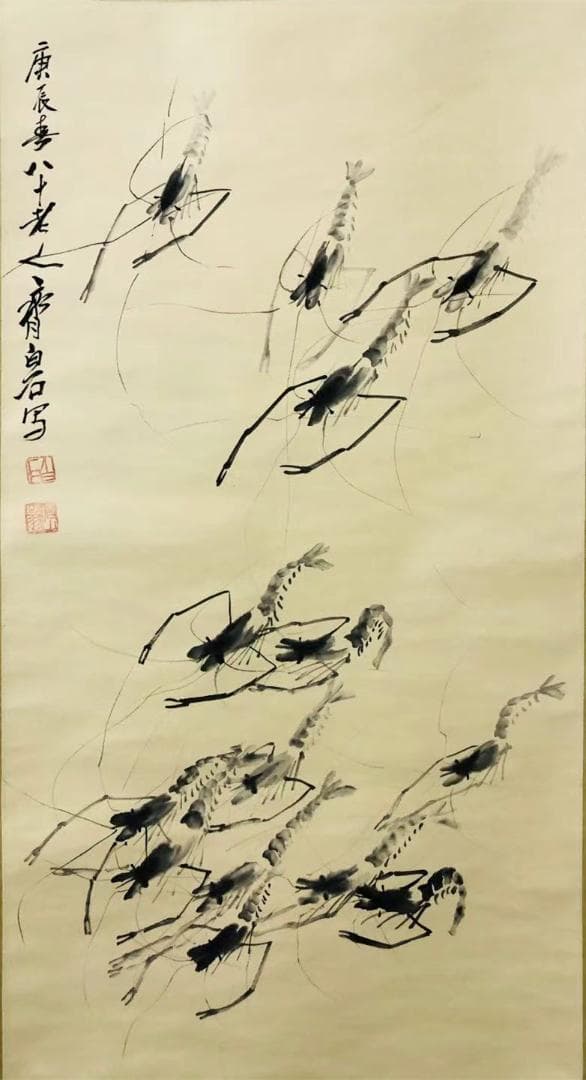 庚辰春八十老人齊白石写